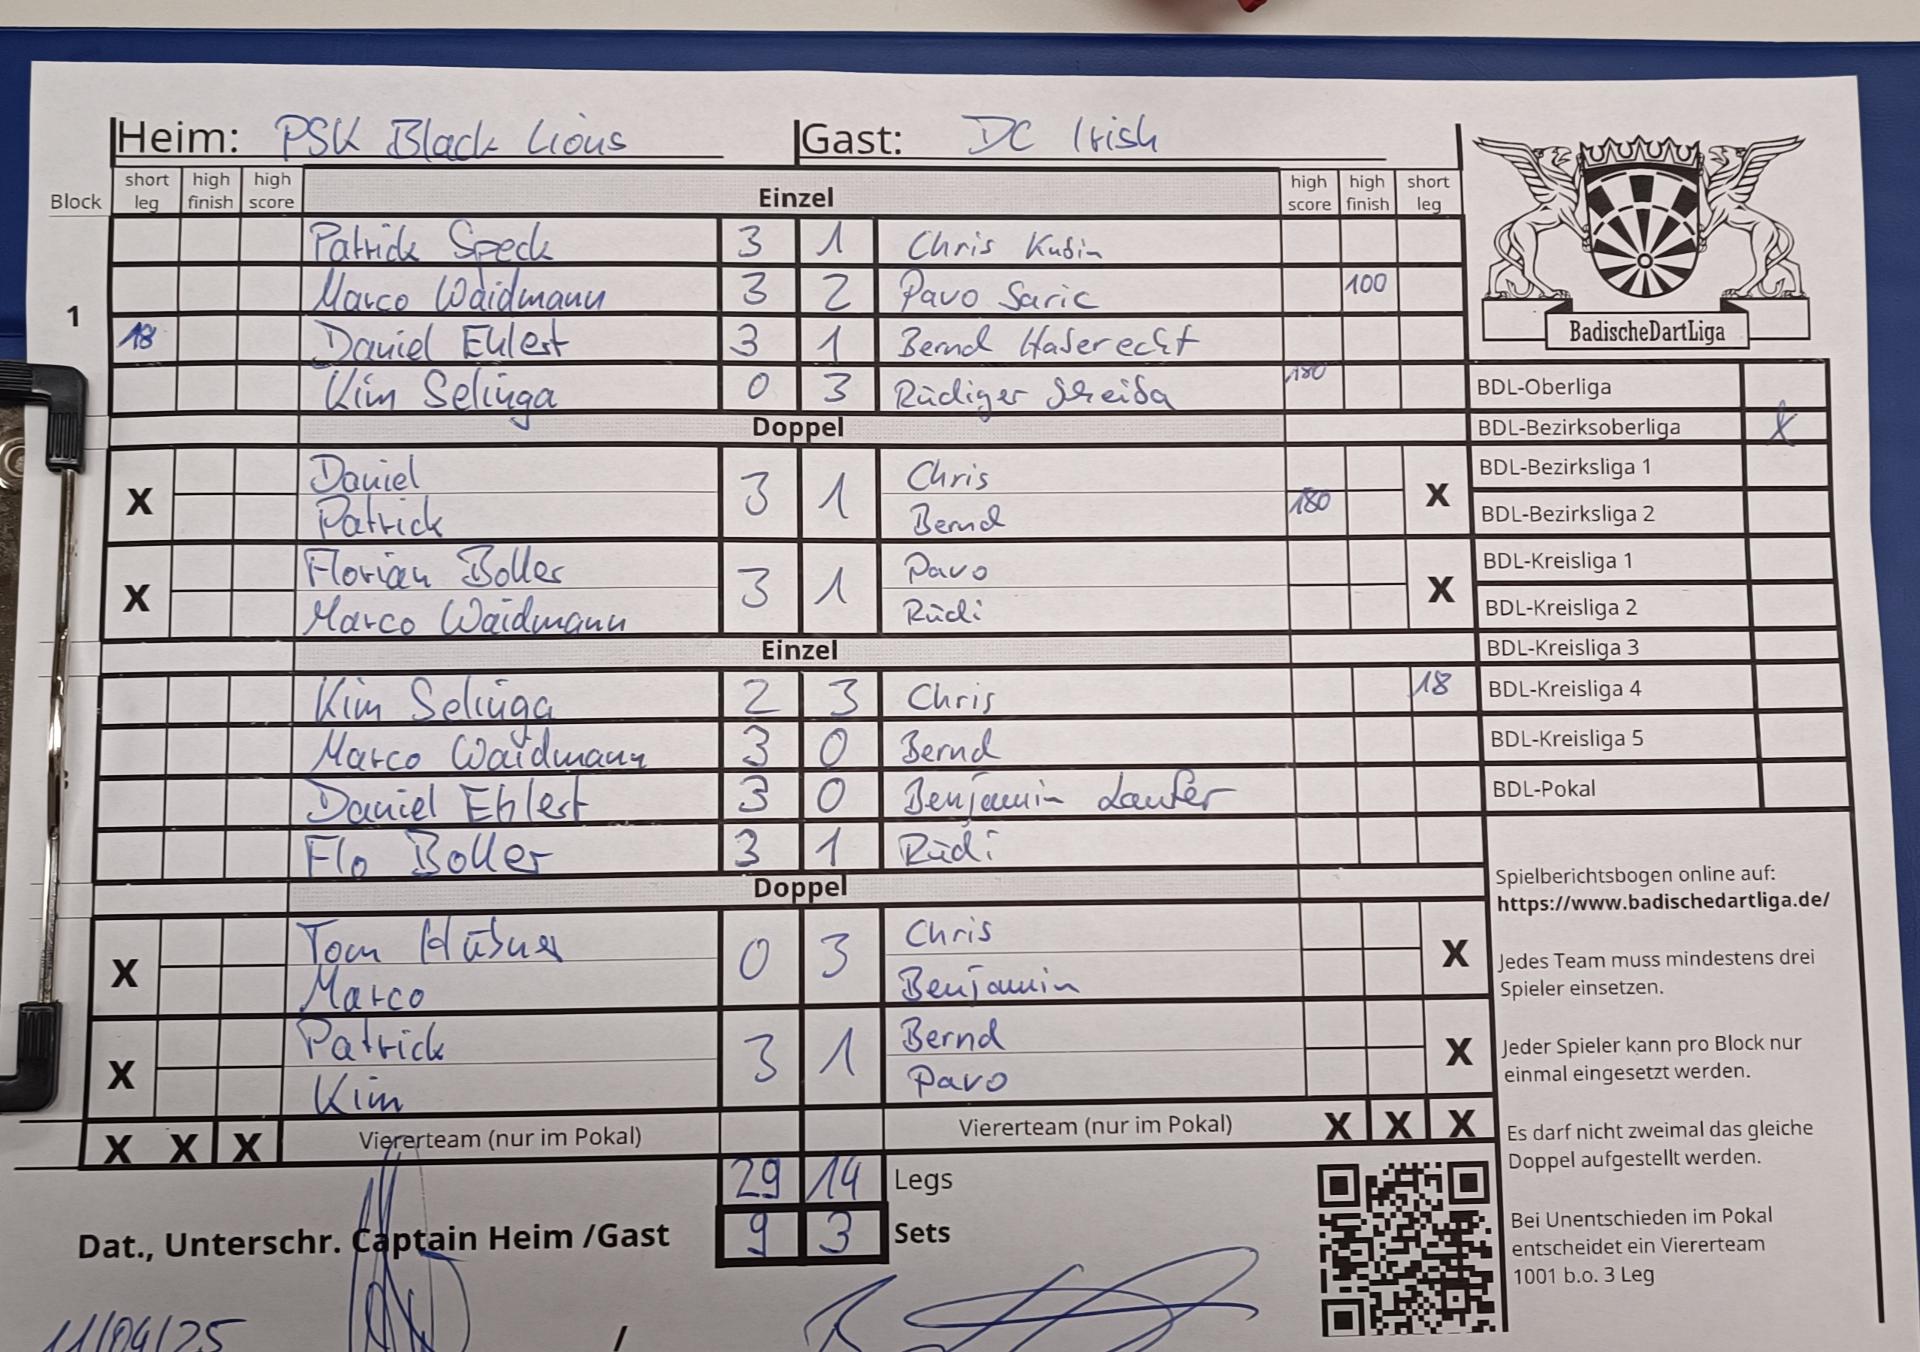 Heim: PSK Black Lions Gast: DC Irish
Block short leg high finish high score Einzel high score high finish short leg
Patrick Speck 3 1 Chris Kubin
Marco Waidmann 3 2 Pavo Saric 100
1
18 Daniel Ehlert 3 1 Bernd Haberecht
Kim Selinga 0 3 Rüdiger Skeiba 180
Doppel
Daniel Chris
X 3 1 X
Patrick Bernd 180
Florian Boller Pavo
X 3 1 X
Marco Waidmann Rüdi
Einzel
Kim Selinga 2 3 Chris 18
Marco Waidmann 3 0 Bernd
Daniel Ehlert 3 0 Benjamin Laufer
Flo Boller 3 1 Rüdi
Doppel
Tom Hübner Chris
X 0 3 X
Marco Benjamin
Patrick Bernd
X 3 1 X
Kim Pavo
X X X Viererteam (nur im Pokal) Viererteam (nur im Pokal) X X X
29 14 Legs
Dat., Unterschr. Captain Heim /Gast 9 3 Sets
11/04/25 /
BadischeDartLiga
BDL-Oberliga
BDL-Bezirksoberliga X
BDL-Bezirksliga 1
BDL-Bezirksliga 2
BDL-Kreisliga 1
BDL-Kreisliga 2
BDL-Kreisliga 3
BDL-Kreisliga 4
BDL-Kreisliga 5
BDL-Pokal
Spielberichtsbogen online auf:
https://www.badischedartliga.de/
Jedes Team muss mindestens drei
Spieler einsetzen.
Jeder Spieler kann pro Block nur
einmal eingesetzt werden.
Es darf nicht zweimal das gleiche
Doppel aufgestellt werden.
Bei Unentschieden im Pokal
entscheidet ein Viererteam
1001 b.o. 3 Leg